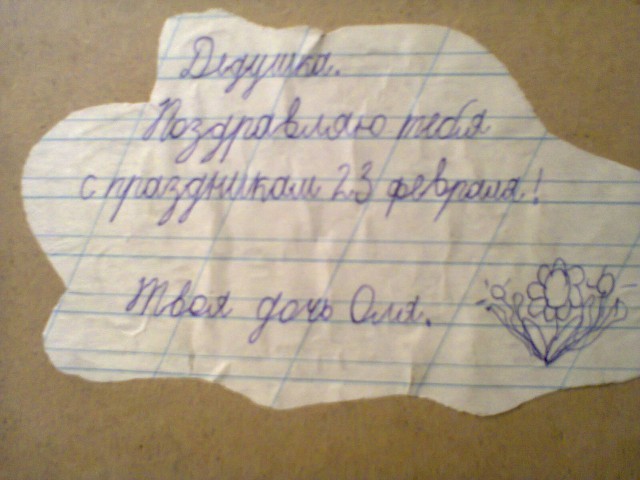 Дедушка.
Поздравляю тебя
с праздникам 23 февраля!
Твоя дочь Оля.